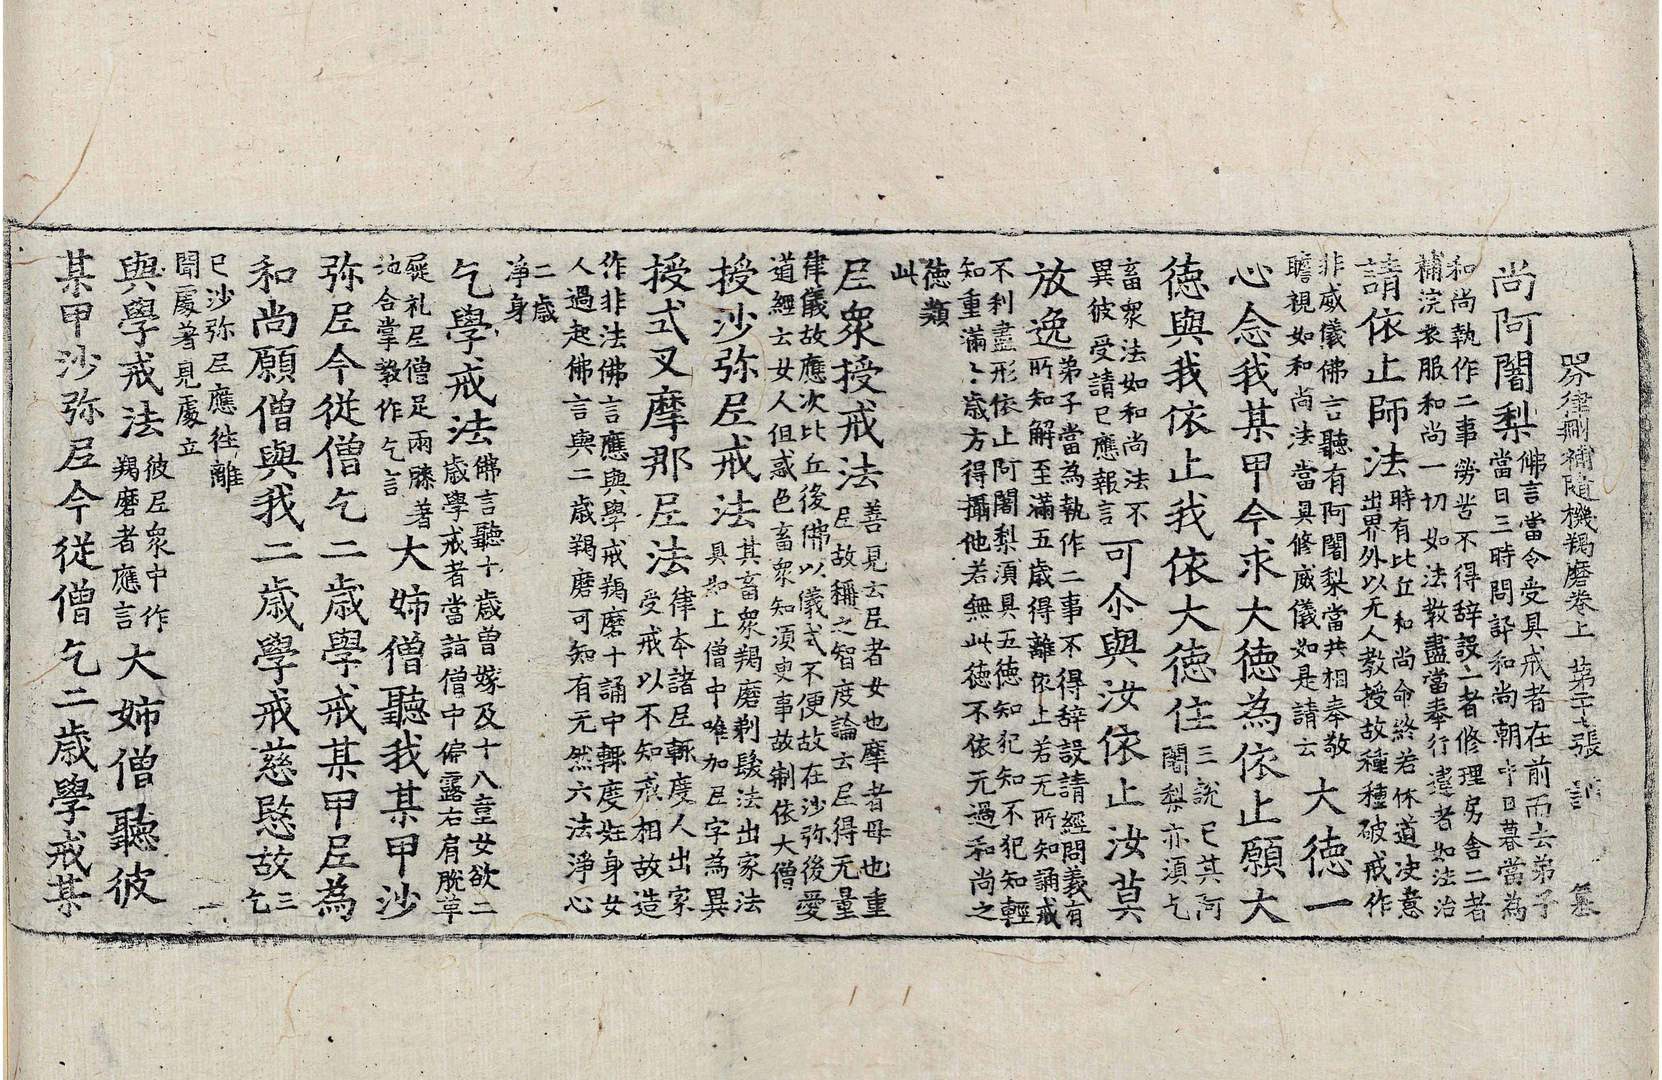 分律刪補隨機羯磨卷上 苐二十張
尚阿闍梨
佛言當令受具戒者在前而去弟子
當日三時問訊和尚朝中日暮當為
和尚執作二事勞苦不得辞設一者修理房舍二者
補浣衣服和尚一切如法教盡當奉行違者如法治
請依止師法
時有比丘和尚命終若休道决意
出界外以无人教授故種種破戒作
非威儀佛言聽有阿闍梨當共相奉敬
瞻視如和尚法當具修威儀如是請云
大德一
心念我某甲今求大德為依止願大
德與我依止我依大德住
三說已其阿
闍梨亦須乞
畜衆法如和尚法不
異彼受請已應報言
可尒與汝依止汝莫
放逸
弟子當為執作二事不得辞設請經問義有
所知解至滿五歲得離依止若无所知誦戒
不利盡形依止阿闍梨須具五德知犯知不犯知輕
知重滿歲方得攝他若無此德不依无過和尚之
德類
此
尼衆授戒法
善見云尼者女也摩者母也重
尼故稱之智度論云尼得无量
律儀故應次比丘後佛以儀式不便故在沙弥後愛
道經云女人但惑色畜衆知須臾事故制依大僧
授沙弥尼戒法
其畜衆羯磨剃髮法出家法
具如上僧中唯加尼字為異
授式叉摩那尼法
律本諸尼輒度人出家
受戒以不知戒相故造
作非法佛言應與學戒羯磨十誦中輒度妊身女
人過起佛言與二歲羯磨可知有无然六法淨心
二歲
淨身
乞學戒法
佛言聽十歲曾嫁及十八童女欲二
歲學戒者當詣僧中偏露右肩脫革
屣礼尼僧足兩膝著
地合掌教作乞言
大姊僧聽我某甲沙
弥尼今從僧乞二歲學戒某甲尼為
和尚願僧與我二歲學戒慈愍故
三
乞
已沙弥尼應往離
聞處著見處立
與學戒法
彼尼衆中作
羯磨者應言
大姊僧聽彼
某甲沙弥尼今從僧乞二歲學戒某